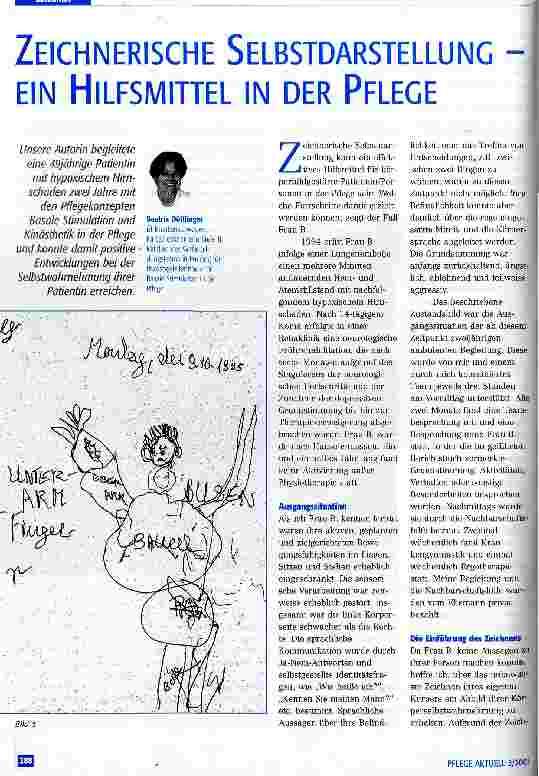 ZEICHNERISCHE SELBSTDARSTELLUNG –
EIN HILFSMITTEL IN DER PFLEGE
Unsere Autorin begleitete
eine 49jährige Patientin
mit hypoxischem Hirn-
schaden zwei Jahre mit
den Pflegekonzepten
Basale Stimulation und
Kinästhetik in der Pflege
und konnte damit positive
Entwicklungen bei der
Selbstwahrnehmung ihrer
Patientin erreichen.
Beatrix Döttlinger
Pflege
Zeichnerische Selbstdar-
stellung kann ein effek-
tives Hilfsmittel für kör-
in der Pflege sein. Wel-
che Fortschritte damit erzielt
werden können, zeigt der Fall
Frau B.
1994 erlitt Frau B.
infolge einer Lungenembolie
einen mehrere Minuten
andauernden Herz- und
Atemstillstand mit nachfol-
gendem hypoxischem Hirn-
schaden. Nach 14-tägigem
Koma erfolgte in einer
Rehaklinik eine neurologische
Frührehabilitation, die nach
sechs Monaten aufgrund des
Stagnierens der neurologi-
schen Fortschritte und der
Zunahme der depressiven
Grundstimmung bis hin zur
Therapieverweigerung abge-
brochen wurde. Frau B. wur-
de nach Hause entlassen.
Physiotherapie statt.
Ausgangssituation
Als ich Frau B. kennen lernte,
waren ihre aktiven, geplanten
und zielgerichteten Bewe-
gungsfähigkeiten im Liegen,
Sitzen und Stehen erheblich
eingeschränkt. Die sensori-
sche Verarbeitung war zeit-
weise erheblich gestört. Ins-
gesamt war die linke Körper-
seite schwächer als die Rech-
te. Die sprachliche
Kommunikation wurde durch
Ja-Nein-Antworten und
selbstgestellte Identitätsfra-
gen, wie „Wie heiße ich?"
„Kennen Sie meinen Mann?"
etc. bestimmt. Sprachliche
Aussagen über ihre Befind-
lichkeit oder das Treffen von
Entscheidungen, z.B. zwi-
schen zwei Dingen zu
wählen, waren zu diesem
Zeitpunkt nicht möglich. Ihre
Befindlichkeit konnte aber
deutlich über die
Mimik und die Körper-
sprache abgeleitet werden.
Die Grundstimmung war
anfangs zurückhaltend, ängst-
lich, ablehnend und teilweise
aggressiv.
Das beschriebene
Zustandsbild war die Aus-
gangssituation der ab diesem
Zeitpunkt zweijährigen
ambulanten Begleitung. Diese
wurde von mir und einem
durch mich
Team jeweils drei Stunden
am Vormittag unterstützt. Alle
zwei Monate fand eine Team-
besprechung mit und eine
Besprechung ohne Frau B.
statt, in der die
Grundstimmung, Aktivitäten,
Verhalten oder sonstige
Besonderheiten besprochen
wurden. Nachmittags wurde
sie durch die Nachbarschafts-
hilfe betreut. Zweimal
wöchentlich fand Kran-
kengymnastik und einmal
wöchentlich Ergotherapie
statt. Meine Begleitung und
die Nachbarschaftshilfe wur-
den vom Ehemann privat
bezahlt.
Die Einführung des Zeichnens
Da Frau B. keine Aussagen zu
ihrer Person machen konnte,
hoffte ich, über das
Zeichnen ihres eigenen
Körpers ein Abbild ihrer Kör-
perselbstwahrnehmung zu
erhalten. Aufgrund der Zeich-
Montag, den 9.10.1995
UNTER-
ARM
Finger
OBER
ARM
BUSEN
BAUCH
Bild 1
188
PFLEGE AKTUELL 3/200